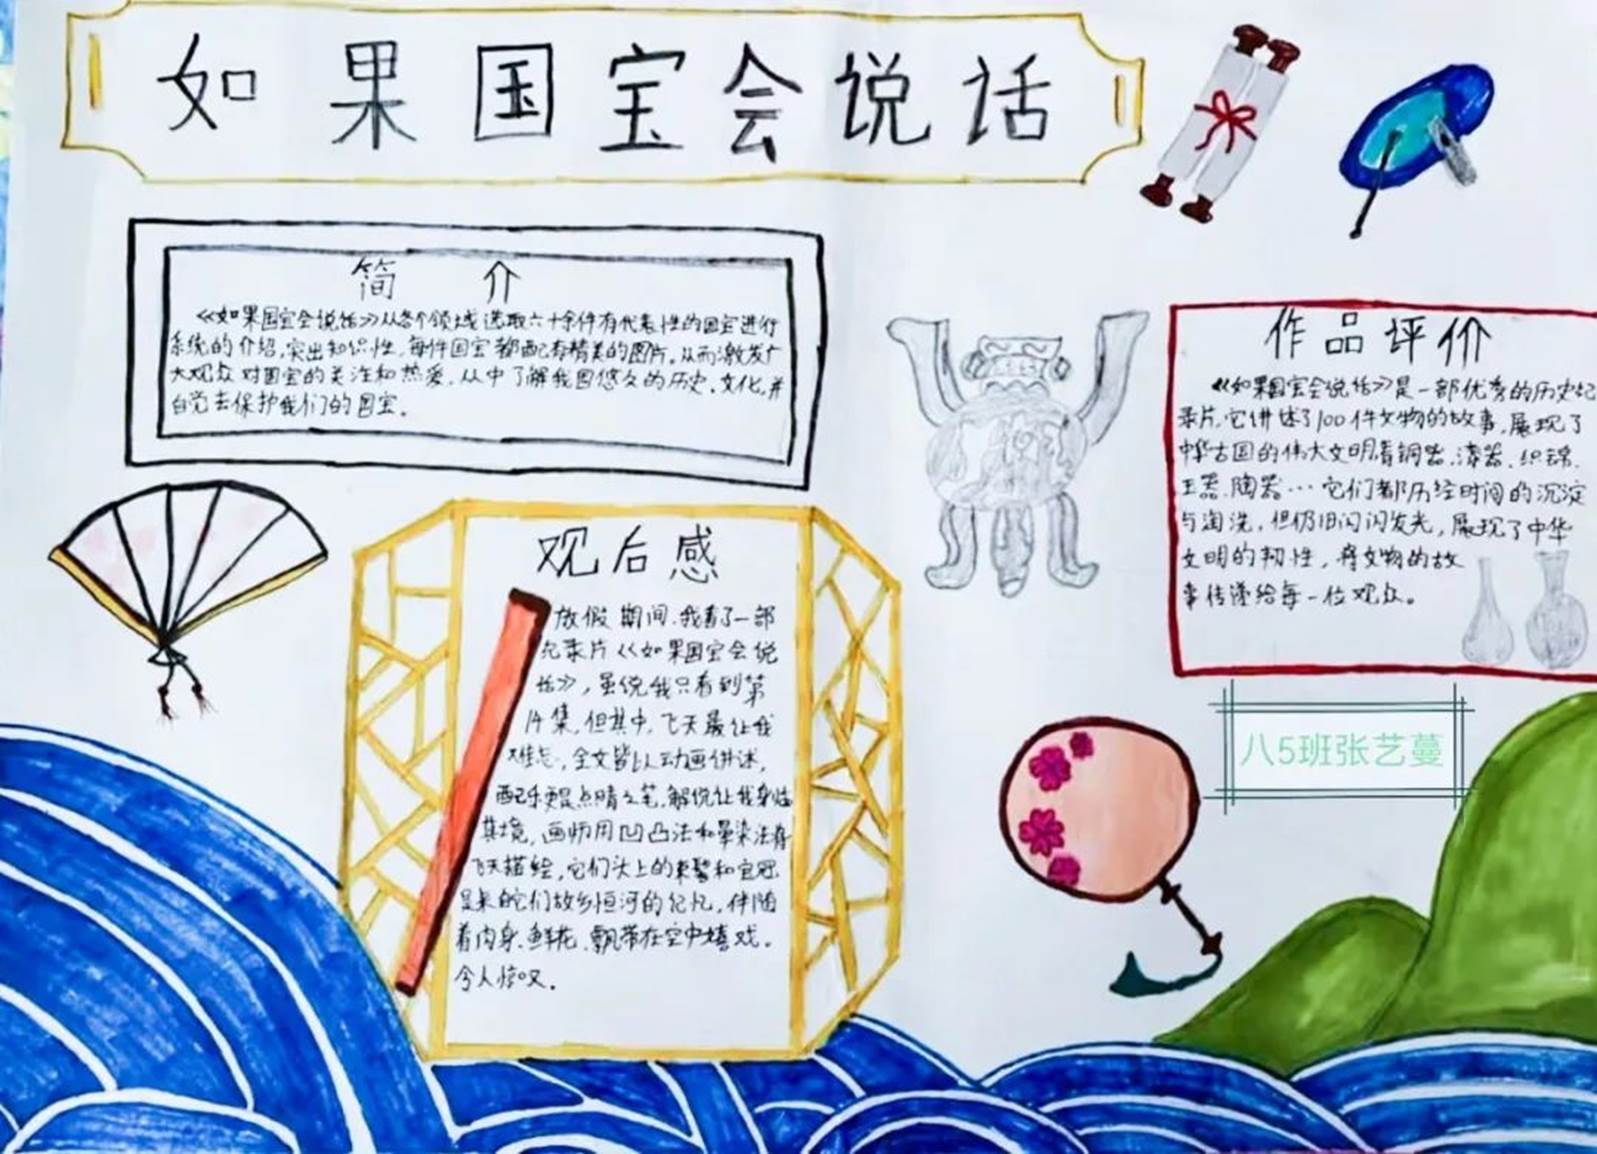 如果国宝会说话
简 介
《如果国宝会说话》从各个领域选取六十余件有代表性的国宝进行
系统的介绍,突出知识性,每件国宝都配有精美的图片,从而激发广
大观众对国宝的关注和热爱,从中了解我国悠久的历史,文化,并
自觉去保护我们的国宝。
观后感
放假期间,我看了一部
纪录片《如果国宝会说
话》,虽说我只看到第
14集,但其中,飞天最让我
难忘,全文皆以动画讲述,
配乐更是点睛之笔,解说让我身临
其境,画师用凹凸法和晕染法将
飞天描绘,它们头上的束髻和宝冠
是来自它们故乡恒河的记忆,伴随
着肉身、鲜花、飘带在空中嬉戏。
令人惊叹。
作品评价
《如果国宝会说话》是一部优秀的历史纪
录片,它讲述了100件文物的故事,展现了
中华古国的伟大文明青铜器、漆器、织锦、
玉器、陶器…它们都历经时间的沉淀
与淘洗,但仍旧闪闪发光,展现了中华
文明的韧性,将文物的故
事传递给每一位观众。
八5班张艺蔓